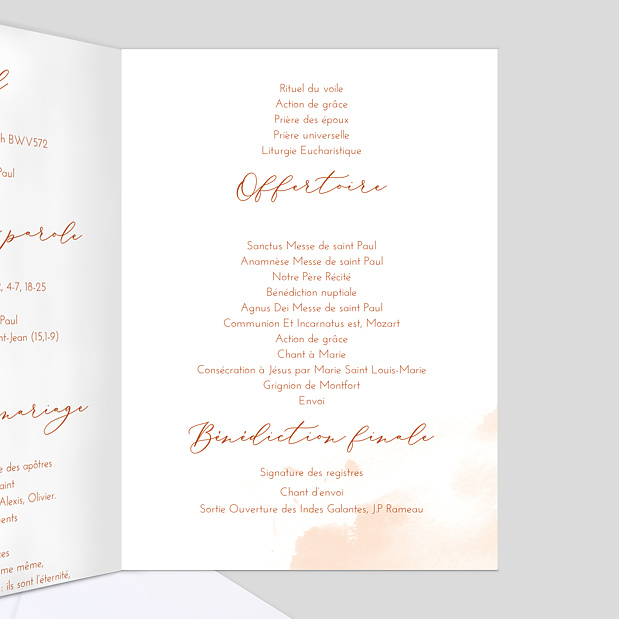 h BWV572
Paul
parole
4-7, 18-25
Paul
nt-Jean (15,1-9)
mariage
e des apôtres
aint
Alexis, Olivier.
ents
es
me même,
: ils sont l'éternité,
Rituel du voile
Action de grâce
Prière des époux
Prière universelle
Liturgie Eucharistique
Offertoire
Sanctus Messe de saint Paul
Anamnèse Messe de saint Paul
Notre Père Récité
Bénédiction nuptiale
Agnus Dei Messe de saint Paul
Communion Et Incarnatus est, Mozart
Action de grâce
Chant à Marie
Consécration à Jésus par Marie Saint Louis-Marie
Grignion de Montfort
Envoi
Bénédiction finale
Signature des registres
Chant d'envoi
Sortie Ouverture des Indes Galantes, J.P Rameau